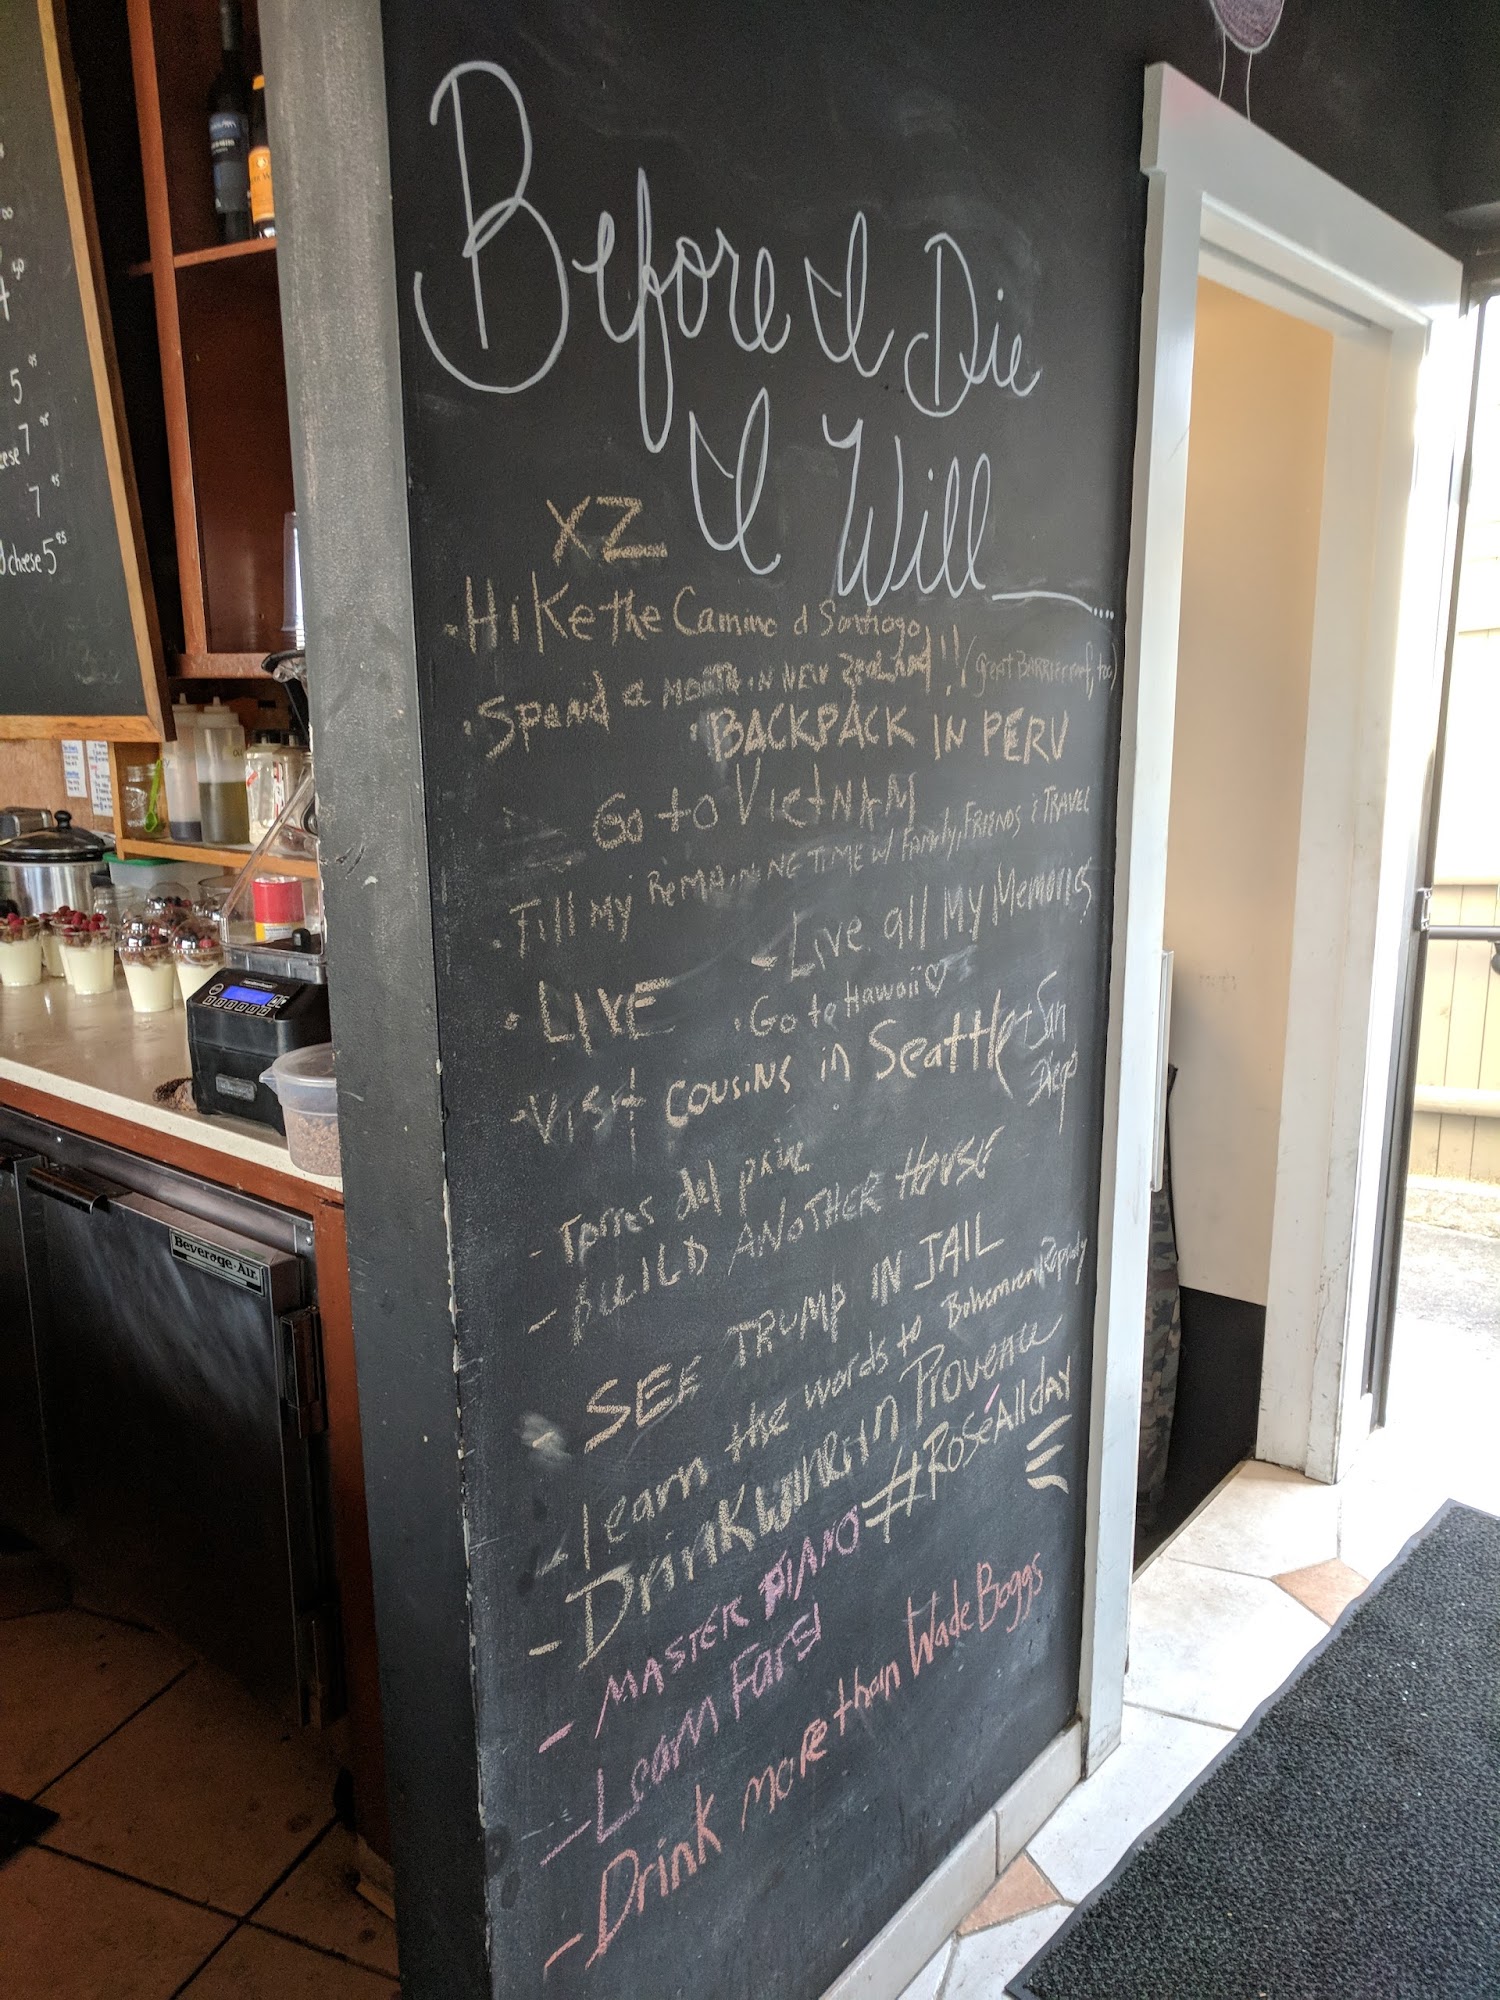 Before I Die
I Will ....
XZ
· Hike the Camino d Santiago
· Spend a month in New Zealand!! (Great Barrier reef, too)
· BACKPACK IN PERU
Go to VIETNAM
· Fill my REMAINING TIME w/ Family, FRIENDS & TRAVEL
- Live all My Memories
· LIVE
· Go to Hawaii ♡
· Visit cousins in Seattle + San Diego
- Torres del paine
- BUILD ANOTHER HOUSE
- SEE TRUMP IN JAIL
- learn the words to Bohemian Rapsody
- Drink wine in Provence
#RoséAllday
- MASTER PIANO
- Learn Farsi
- Drink more than Wade Boggs
5 95
7 95
7 95
cheese 5 95
Beverage-Air